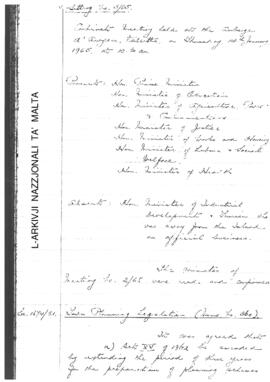 Sitting No. 3/65.
Cabinet Meeting held at the Auberge
d'Aragon, Valletta, on
1965, at 10 a.m.
Present: Hon. Prime Minister
Hon. Minister of Education
Hon. Minister of Agriculture,
& Communications
Hon. Minister of Justice
Hon. Minister of Works and Housing
Hon. Minister of Labour & Social
Welfare
Hon. Minister of Health
Absent: Hon. Minister of Industrial
Development & Tourism who
was away from the Island
on official business.
The Minutes of
Meeting No. 2/65 were read and confirmed
Town Planning Legislation
It was agreed that
of 1962 be amended
by extending the period of three years
for the preparation of planning schemes
L-ARKIVJI NAZZJONALI TA' MALTA